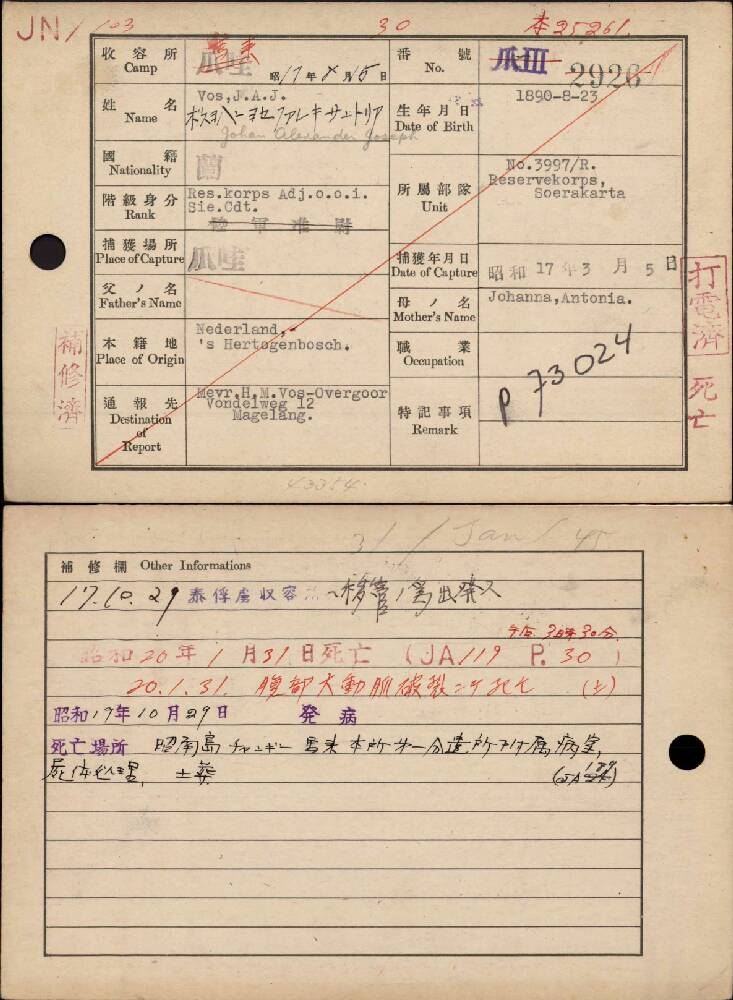 JN/ 103 30 本25261.
收容所 Camp 爪哇 馬来 昭17年8月15日
番號 No. 爪III 2926
姓名 Name Vos,J.A.J.
Johan Alexander Joseph
生年月日 Date of Birth 1890-8-23
國籍 Nationality 蘭
階級身分 Rank Res.korps Adj.o.o.i.
Sie.Cdt.
陸軍准尉
所屬部隊 Unit No.3997/R.
Reservekorps,
Soerakarta
捕獲場所 Place of Capture 爪哇
捕獲年月日 Date of Capture 昭和 17年3月5日
父ノ名 Father's Name
母ノ名 Mother's Name Johanna,Antonia.
本籍地 Place of Origin Nederland,-
's Hertogenbosch.
職業 Occupation
通報先 Destination of Report Mevr.H.M.Vos-Overgoor
Vondelweg 12
Magelang.
特記事項 Remark P 73024
補修濟
打電濟 死亡
43054.
31/Jan/45
補修欄 Other Informations
17.10.29 泰俘虜収容所へ移管ノ為出発ス
午后 3時30分
昭和20年1月31日死亡 (JA119 P.30)
20.1.31. 腹部大動脈破裂ニテ死亡 (土)
昭和17年10月29日 発病
死亡場所 昭南島チャンギー馬来本所第一分遣所附属病室,
屍体処理, 土葬